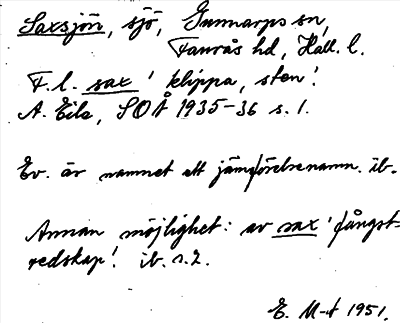 Saxsjön, sjö, Gunnarps sn,
Faurås hd, Hall. l.
F. l. sax 'klippa, sten'.
A. Eile, SOÅ 1935-36 s. 1.
Ev. är namnet ett jämförelsenamn. ib.
Annan möjlighet: av sax 'fångst-
redskap'. ib. s. 2.
E. M-t 1951.